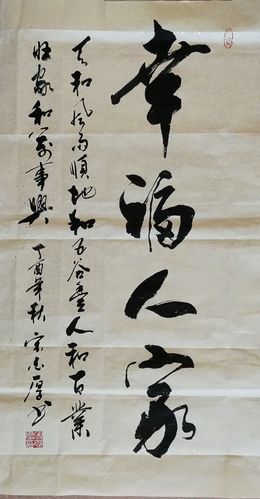 幸福人家
天和风雨顺地和五谷丰人和百业
旺家和万事興
丁酉年秋 宋志厚书